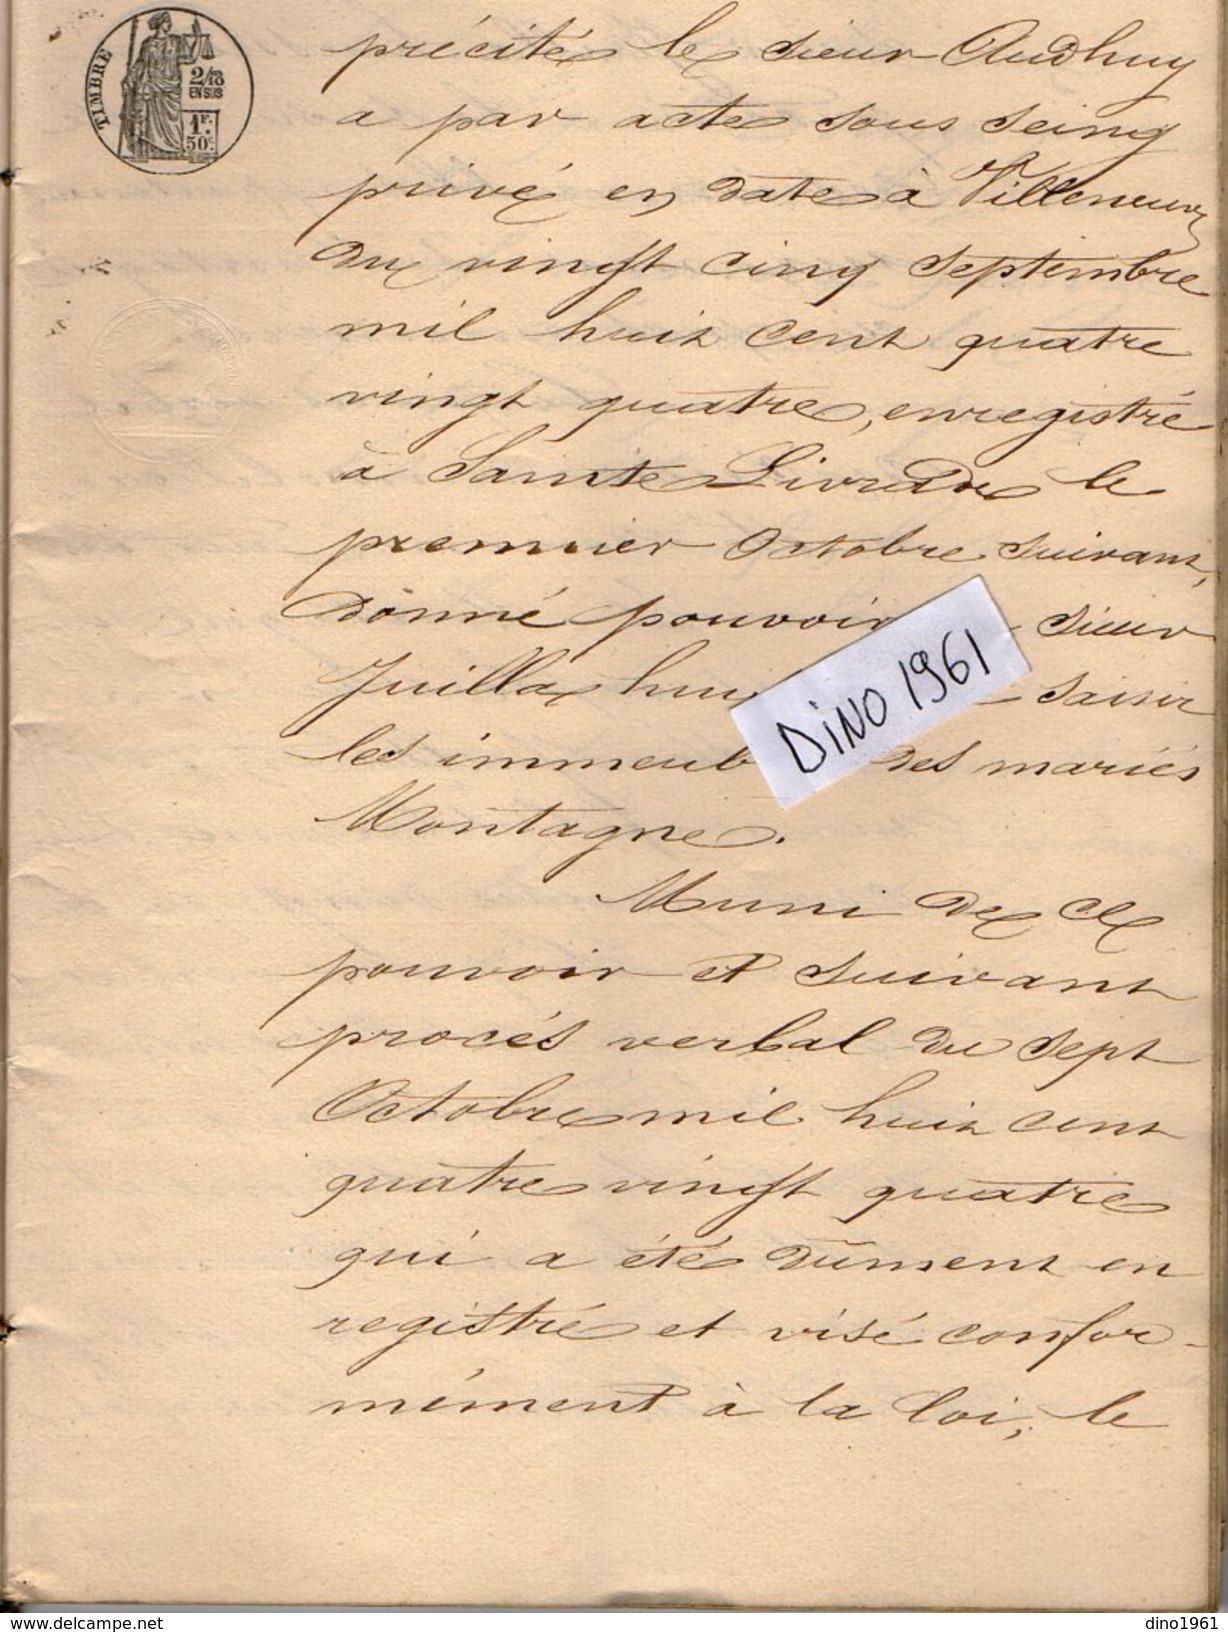 TIMBRE
2/10
EN SUS
1F.
50c.
précité le sieur Audhuy
a par acte sous seing
privé en date à Villeneuve
du vingt cinq septembre
mil huit cent quatre
vingt quatre, enregistré
à Sainte Livrade le
premier Octobre suivant,
donné pouvoir sieur
Juilla saisir
les des mariés
Montagne.
Muni de ce
pouvoir et suivant
procès verbal du sept
Octobre mil huit cent
quatre vingt quatre
qui a été dûment en
registré et visé confor-
mément à la loi, le
DiNO 1961
dino1961